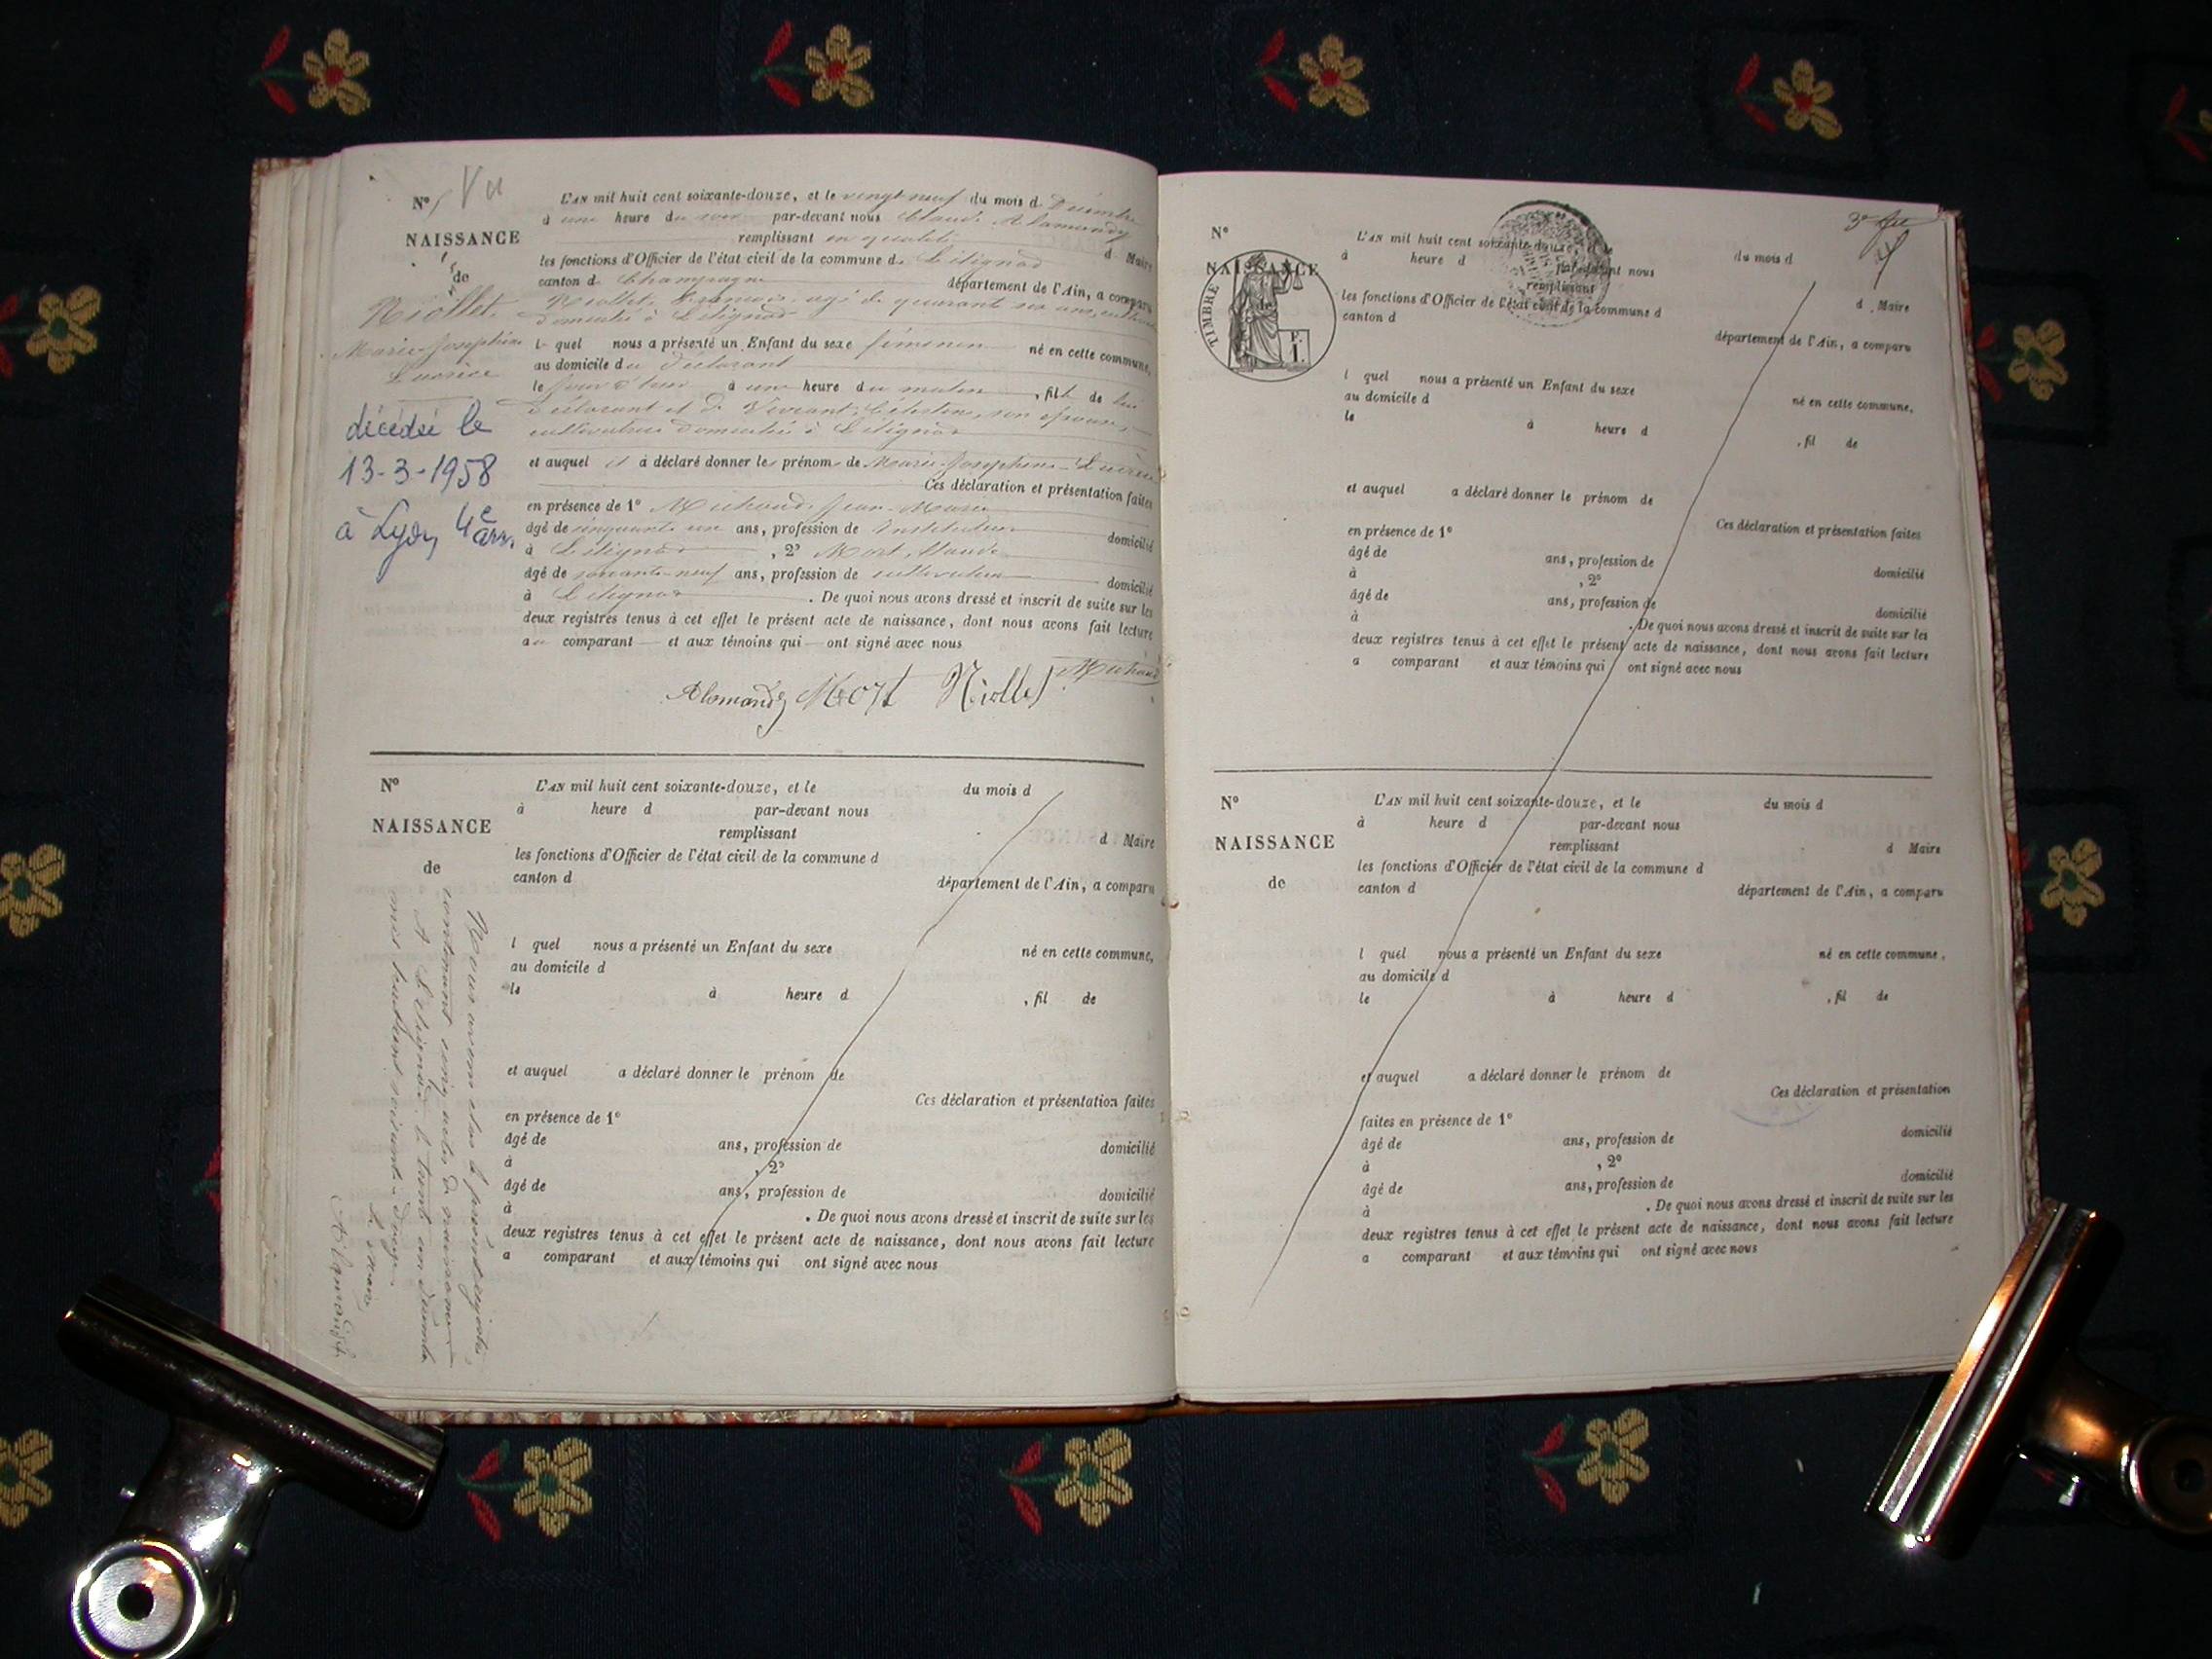 N° 5 Vu
NAISSANCE
de
Niollet
Marie-Joséphine
Lucrèce
décédée le
13-3-1958
à Lyon 4e arr.
L'AN mil huit cent soixante-douze, et le vingt neuf du mois d Décembre
à une heure du soir par-devant nous Claude Alamandy
remplissant en qualité d Maire
les fonctions d'Officier de l'état civil de la commune d. Lilignod
canton d Champagne département de l'Ain, a comparu
Niollet, François, agé de quarant six ans, cultivateur
domicilié à Lilignod
l quel nous a présenté un Enfant du sexe féminin né en cette commune,
au domicile du déclarant
le jour à une heure du matin , fille de lui
déclarant et de Célestine, son épouse,
cultivatrice domiciliée à Lilignod
et auquel il a déclaré donner les prénoms de Marie-Joséphine-Lucrèce
Ces déclaration et présentation faites
en présence de 1° Michaud, Jean-Marie
âgé de cinquante un ans, profession de Instituteur domicilié
à Lilignod , 2° Mort, Claude
âgé de soixante-neuf ans, profession de cultivateur domicilié
à Lilignod . De quoi nous avons dressé et inscrit de suite sur les
deux registres tenus à cet effet le présent acte de naissance, dont nous avons fait lecture
au comparant et aux témoins qui ont signé avec nous
Alamandy Mort Niollet Michaud
N°
NAISSANCE
de
L'AN mil huit cent soixante-douze, et le du mois d
à heure d par-devant nous
remplissant d Maire
les fonctions d'Officier de l'état civil de la commune d
canton d département de l'Ain, a comparu
l quel nous a présenté un Enfant du sexe né en cette commune,
au domicile d
le à heure d , fil de
et auquel a déclaré donner le prénom de
Ces déclaration et présentation faites
en présence de 1°
âgé de ans, profession de domicilié
à , 2°
âgé de ans, profession de domicilié
à . De quoi nous avons dressé et inscrit de suite sur les
deux registres tenus à cet effet le présent acte de naissance, dont nous avons fait lecture
a comparant et aux témoins qui ont signé avec nous
Nous avons clos le présent registre,
contenant cinq actes de naissance
A Lilignod, le trente un Décembre
mil huit cent soixante-douze
Le maire,
Alamandy
N°
NAISSANCE
TIMBRE
L'AN mil huit cent soixante-douze, et le du mois d
à heure d par-devant nous
remplissant d Maire
les fonctions d'Officier de l'état civil de la commune d
canton d département de l'Ain, a comparu
l quel nous a présenté un Enfant du sexe né en cette commune,
au domicile d
le à heure d , fil de
et auquel a déclaré donner le prénom de
Ces déclaration et présentation faites
en présence de 1°
âgé de ans, profession de domicilié
à , 2°
âgé de ans, profession de domicilié
à . De quoi nous avons dressé et inscrit de suite sur les
deux registres tenus à cet effet le présent acte de naissance, dont nous avons fait lecture
a comparant et aux témoins qui ont signé avec nous
N°
NAISSANCE
de
L'AN mil huit cent soixante-douze, et le du mois d
à heure d par-devant nous
remplissant d Maire
les fonctions d'Officier de l'état civil de la commune d
canton d département de l'Ain, a comparu
l quel nous a présenté un Enfant du sexe né en cette commune,
au domicile d
le à heure d , fil de
et auquel a déclaré donner le prénom de
Ces déclaration et présentation
faites en présence de 1°
âgé de ans, profession de domicilié
à , 2°
âgé de ans, profession de domicilié
à . De quoi nous avons dressé et inscrit de suite sur les
deux registres tenus à cet effet le présent acte de naissance, dont nous avons fait lecture
a comparant et aux témoins qui ont signé avec nous